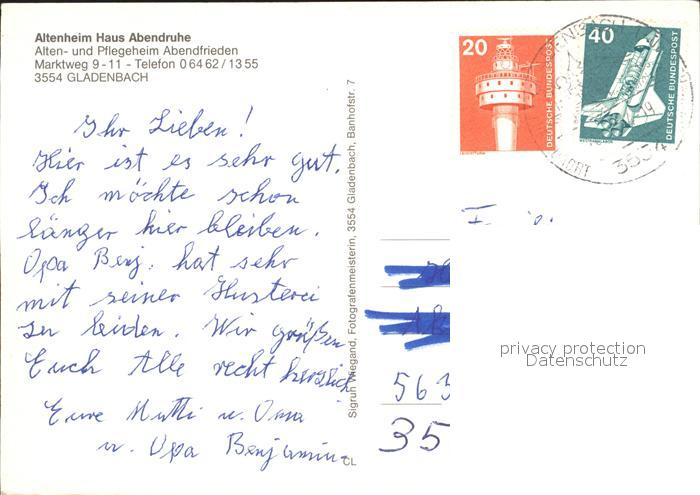 Altenheim Haus Abendruhe
Alten- und Pflegeheim Abendfrieden
Marktweg 9-11 - Telefon 0 64 62 / 13 55
3554 GLADENBACH
Ihr Lieben!
Hier ist es sehr gut.
Ich möchte schon
länger hier bleiben.
Opa Benj. hat sehr
mit seiner Husterei
zu leiden. Wir grüßen
Euch Alle recht herzlich
Eure Mutti u. Oma
u. Opa Benjamin.
CL
Sigrun Wiegand, Fotografenmeisterin, 3554 Gladenbach, Bahnhofstr. 7
20
DEUTSCHE BUNDESPOST
LEUCHTTURM
40
DEUTSCHE BUNDESPOST
WELTRAUMLABOR
3554
563
35
privacy protection
Datenschutz